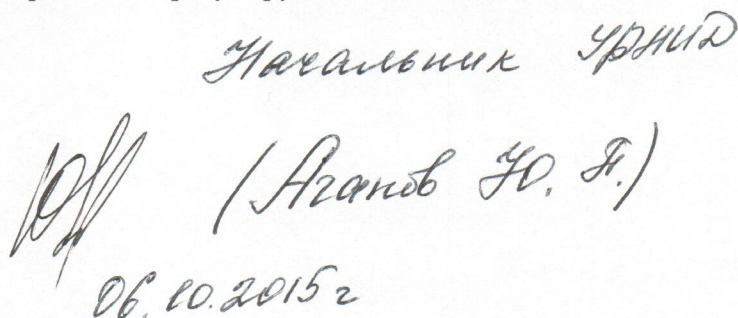 Начальник УРНИД
(Аганов Ю. П.)
06.10.2015г